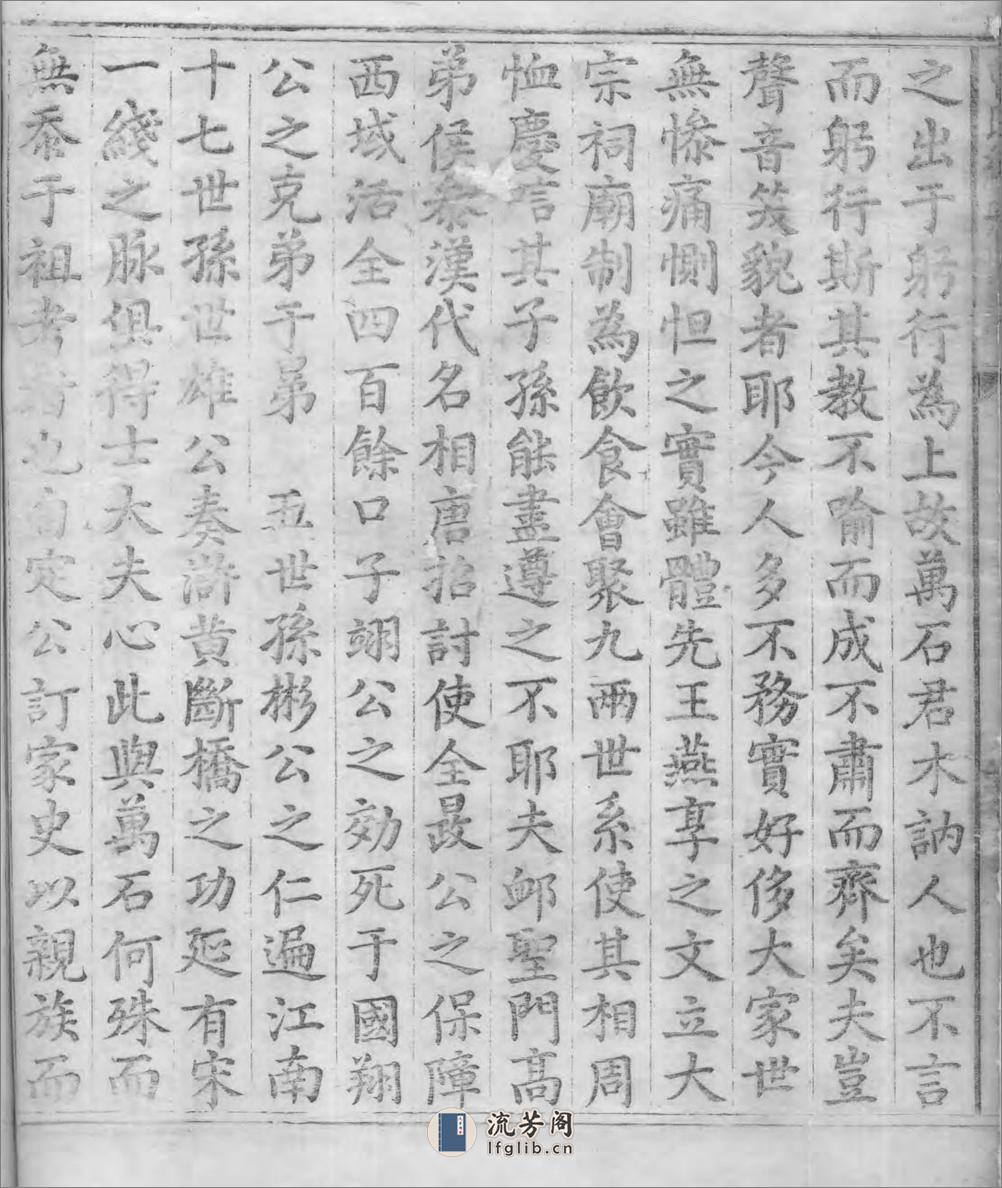 之出于躬行為上故萬石君木訥人也不言
而躬行斯其教不喻而成不肅而齊矣夫豈
聲音笑貌者耶今人多不務實好侈大家世
無慘痛惻怛之實雖體先王燕享之文立大
宗祠廟制為飲食會聚九兩世系使其相周
恤慶言其子孫能盡遵之不耶夫邮聖門高
弟侯漢代名相唐招討使全晸公之保障
西域活全四百餘口子翊公之効死于國翔
公之克弟于弟 五世孫彬公之仁遍江南
十七世孫世雄公奏滸黄斷橋之功延有宋
一綫之脉俱得士大夫心此與萬石何殊而
無忝于祖考者也自定公訂家史以親族而
流芳阁
lfglib.cn